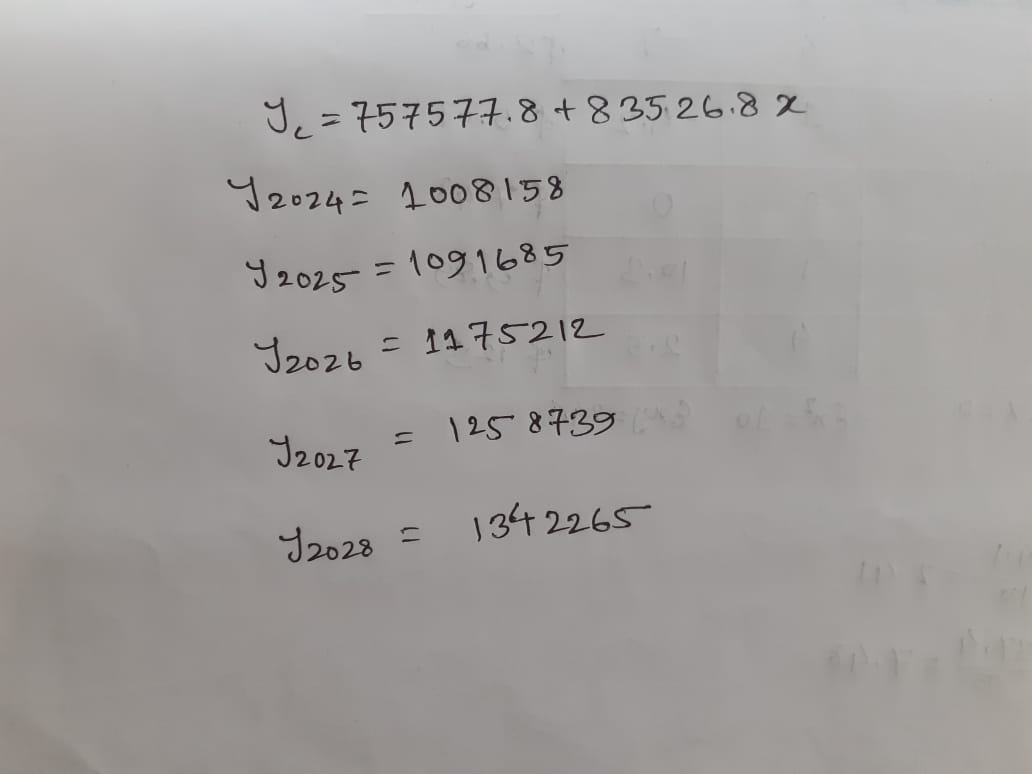 Yc = 757577.8 + 83526.8 x
Y2024 = 1008158
Y2025 = 1091685
Y2026 = 1175212
Y2027 = 1258739
Y2028 = 1342265